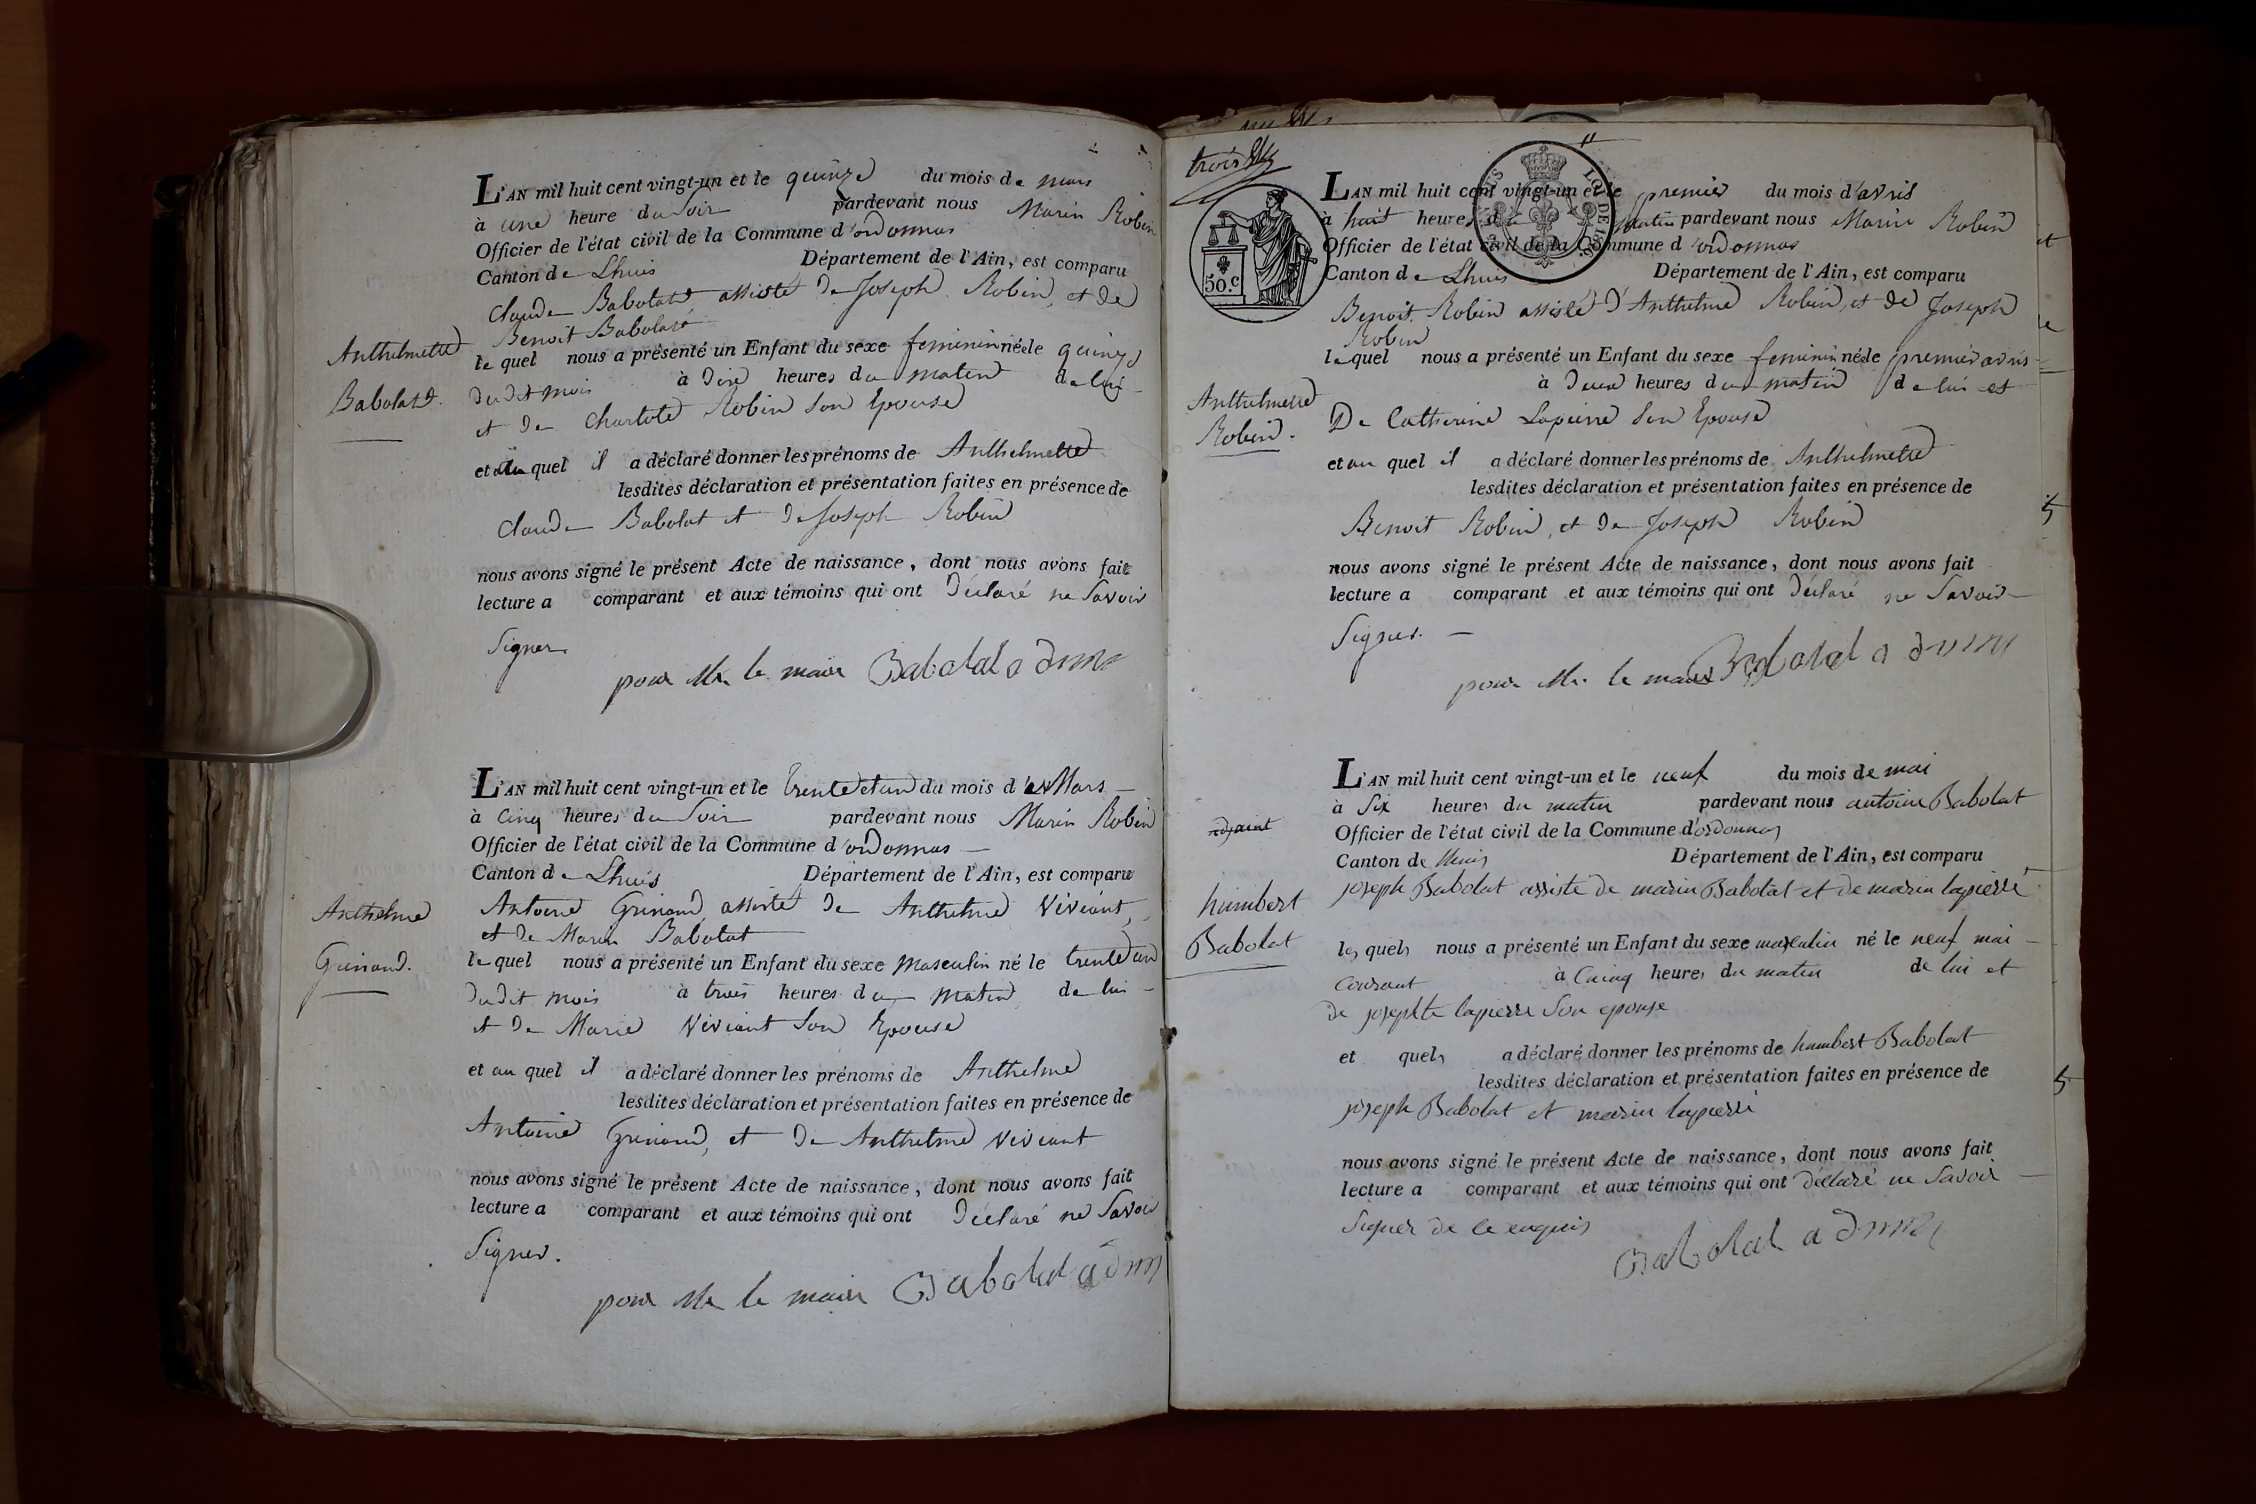 L'AN mil huit cent vingt-un et le quinze du mois de mars
à une heure du Soir pardevant nous Marin Robin
Officier de l'état civil de la Commune d'ordonnas
Canton de Lhuis Département de l'Ain, est comparu
Claude Babolat assisté de Joseph Robin, et de
Benoit Babolat
Anthelmette
Babolat.
le quel nous a présenté un Enfant du sexe feminin née le quinze
dudit mois à dix heures du matin de lui
et de Charlote Robin son Epouse
et au quel il a déclaré donner les prénoms de Anthelmette
lesdites déclaration et présentation faites en présence de
Claude Babolat et de Joseph Robin
nous avons signé le présent Acte de naissance, dont nous avons fait
lecture a comparant et aux témoins qui ont déclaré ne Savoir
Signer
pour Mr le maire Babolat
L'AN mil huit cent vingt-un et le trente et un du mois d Mars
à Cinq heures du Soir pardevant nous Marin Robin
Officier de l'état civil de la Commune d'ordonnas
Canton de Lhuis Département de l'Ain, est comparu
Anthelme
Antoine assisté de Anthelme Viviant,
et de Marin Babolat
le quel nous a présenté un Enfant du sexe Masculin né le trente un
dudit mois à trois heures du matin de lui
et de Marie Viviant son Epouse
et au quel il a déclaré donner les prénoms de Anthelme
lesdites déclaration et présentation faites en présence de
Antoine et de Anthelme Viviant
nous avons signé le présent Acte de naissance, dont nous avons fait
lecture a comparant et aux témoins qui ont déclaré ne Savoir
Signer.
pour Mr le maire Babolat
trois
50.c
LOI DE 1816.
L'AN mil huit cent vingt-un et le premier du mois d'avril
à huit heures du matin pardevant nous Marin Robin
Officier de l'état civil de la Commune d'ordonnas
Canton de Lhuis Département de l'Ain, est comparu
Benoit Robin assisté d'Anthelme Robin, et de Joseph
Robin
Anthelmette
Robin.
le quel nous a présenté un Enfant du sexe feminin née le premier avril
à deux heures du matin de lui et
De Catherine Lapierre son Epouse
et au quel il a déclaré donner les prénoms de Anthelmette
lesdites déclaration et présentation faites en présence de
Benoit Robin, et de Joseph Robin
nous avons signé le présent Acte de naissance, dont nous avons fait
lecture a comparant et aux témoins qui ont déclaré ne Savoir
Signer.
pour Mr le maire Babolat
L'AN mil huit cent vingt-un et le neuf du mois de mai
à Six heures du matin pardevant nous antoine Babolat
adjoint
Officier de l'état civil de la Commune d'ordonnas
Canton de lhuis Département de l'Ain, est comparu
joseph Babolat assisté de marin Babolat et de marin lapierre
humbert
Babolat
les quels nous a présenté un Enfant du sexe masculin né le neuf mai
courant à Cainq heures du matin de lui et
de josephte lapierre son epouse
et quels a déclaré donner les prénoms de humbert Babolat
lesdites déclaration et présentation faites en présence de
joseph Babolat et marin lapierre
nous avons signé le présent Acte de naissance, dont nous avons fait
lecture a comparant et aux témoins qui ont déclaré ne Savoir
Signer de ce enquis
Babolat